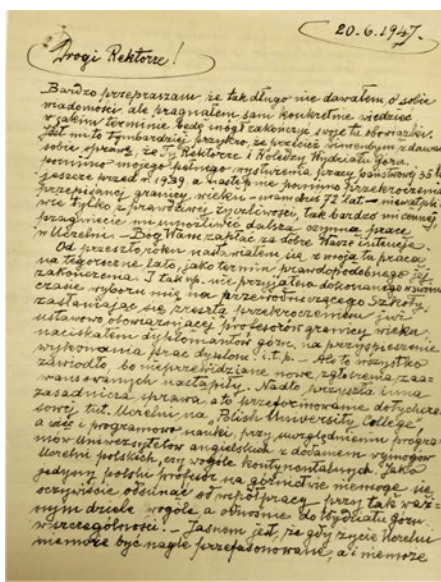 20.6.1947.
Drogi Rektorze!
Bardzo przepraszam, że tak długo nie dawałem o sobie
wiadomości, ale pragnąłem sam konkretnie wiedzieć
w jakim terminie będę mógł zakończyć swoje tu obowiązki.
Jest mi to tymbardziej przykro, że przecież winienbym zdawać
sobie sprawę, że Ty Rektorze i Koledzy Wydziału Górn.
pomimo mojego pełnego wysłużenia pracy państwowej 35 l.
jeszcze przed r. 1939, a następnie pomimo przekroczenia
przepisanej granicy wieku – mam dziś 72 lat –
nie tylko z prawdziwej życzliwości, tak bardzo mi cennej,
pragniecie mi umożliwić dalszą czynną pracę
w Uczelni – Bóg Wam zapłać za dobre Wasze intencje.
Od przeszło roku nastawiałem się z moją tu pracą
na tegoroczne lato, jako termin prawdopodobnego jej
zakończenia. I tak np. nie przyjąłem dokonanego w swoim
czasie wyboru mię na przewodniczącego Szkoły,
zasłaniając się zresztą przekroczeniem już
ustawowo obowiązującej profesorów granicy wieku,
naciskałem dyplomantów górn. na przyspieszenie
wykonania prac dyplom. i.t.p. – Ale to wszystko
zawiodło, bo nieprzewidziane nowe zgłoszenia zaa-
wansowanych nastąpiły. Nadto przyszła inna
zasadnicza sprawa, a to przeformowanie dotychcza-
sowej tut. Uczelni na „Polish University College”,
a więc i programowo nauki, przy uwzględnieniu progra-
mów Uniwersytetów angielskich z dodaniem wymogów
Uczelni polskich, czy wogóle kontynentalnych. Jako
jedyny polski profesor na górnictwie niemogę się
oczywiście odsunąć od współpracy – przy tak waż-
nym dziele wogóle, a odnośnie do Wydziału górn.
w szczególności. – Jasnem jest, że gdy życie Uczelni
niemoże być nagle przefasonowane, a i niemoże